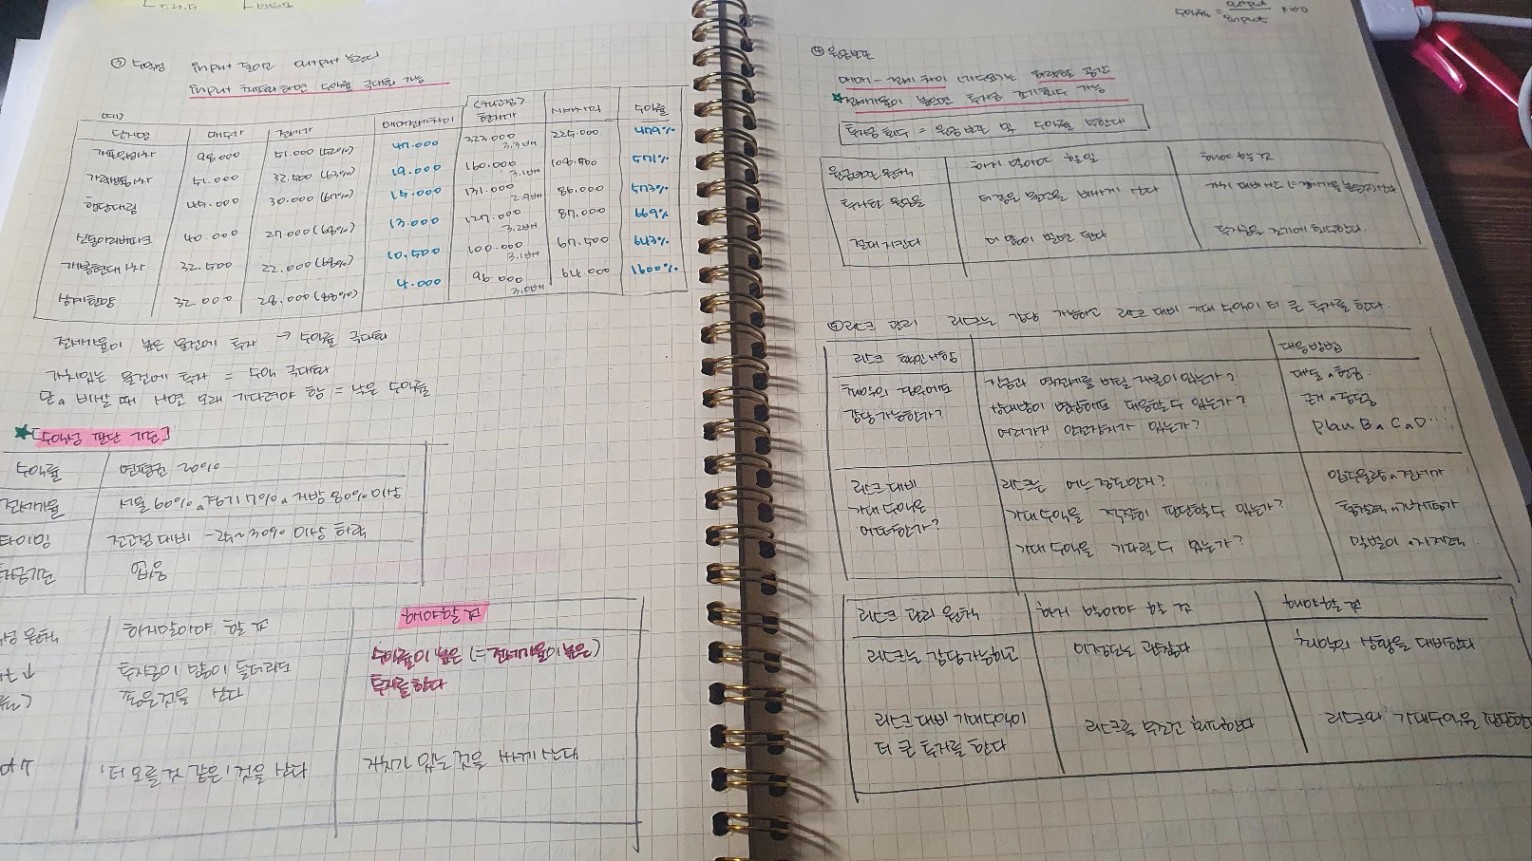 ③ 수익성 input 줄이면 output 늘린다
input 최소화하면 수익률 극대화 가능
예)
단지명 매수가 전세가 매매전세차이 (전고점)현가치 시세차익 수익률
개포우성4차 98.000 51.000(52%) 47.000 323.000 3.3배 225.000 479%
51.000 32.500(63%) 19.000 160.000 3.1배 108.500 571%
행당대림 45.000 30.000(67%) 15.000 131.000 2.9배 86.000 573%
40.000 27.000(68%) 13.000 127.000 3.2배 87.000 669%
32.500 22.000(68%) 10.500 100.000 3.1배 67.500 643%
상계한양 32.000 28.000(88%) 4.000 96.000 3.0배 64.000 1600%
전세가율이 높은 물건에 투자 → 수익률 극대화
가치있는 물건에 투자 = 수익 극대화
단, 비쌀 때 사면 오래 기다려야 함 = 낮은 수익률
★[수익성 판단 기준]
수익률 연평균 20%
전세가율 서울 60%, 경기 70%, 지방 80% 이상
타이밍 전고점 대비 -25~30% 이상 하락
없음
원칙 하지말아야 할 것 해야할 것
투자금이 많이 들더라도 좋은것을 산다
수익률이 높은 (=전세가율이 높은) 투자를 한다
'더 오를 것 같은' 것을 산다
가치가 있는 것을 싸게 산다
수익률 = output / input × 100
④ 원금보전
매매-전세 차이
★전세가율이 높으면 투자금 조기회수 가능
투자금 회수 = 원금 보전 및 수익률 무한대
원금보전 원칙 하지 말아야 할 일 해야 할 것
투자한 원금을 더 싸게
절대 지킨다 투자금을 조기에 회수한다.
⑤ 리스크 관리 리스크는 감당 가능하고 리스크 대비 기대 수익이 더 큰 투자를 한다.
리스크 확인사항 대응방법
최악의 상황에도 감당가능한가?
잔금과 역전세를 버틸 자본이 있는가? 대출, 현금
상대방이 변심해도 대응할 수 있는가?
여러가지 안전장치가 있는가? plan B, C, D…
리스크 대비 기대수익은 어떠한가?
리스크는 어느정도인가?
기대수익을 적절히 판단할 수 있는가?
기대 수익을 기다릴 수 있는가?
리스크 관리 원칙 하지 말아야 할 것 해야할 것
리스크는 감당가능하고 이정도는 괜찮다 최악의 상황을 대비한다
리스크 대비 기대수익이 더 큰 투자를 한다
리스크를 무조건 회피한다
리스크와 기대수익을